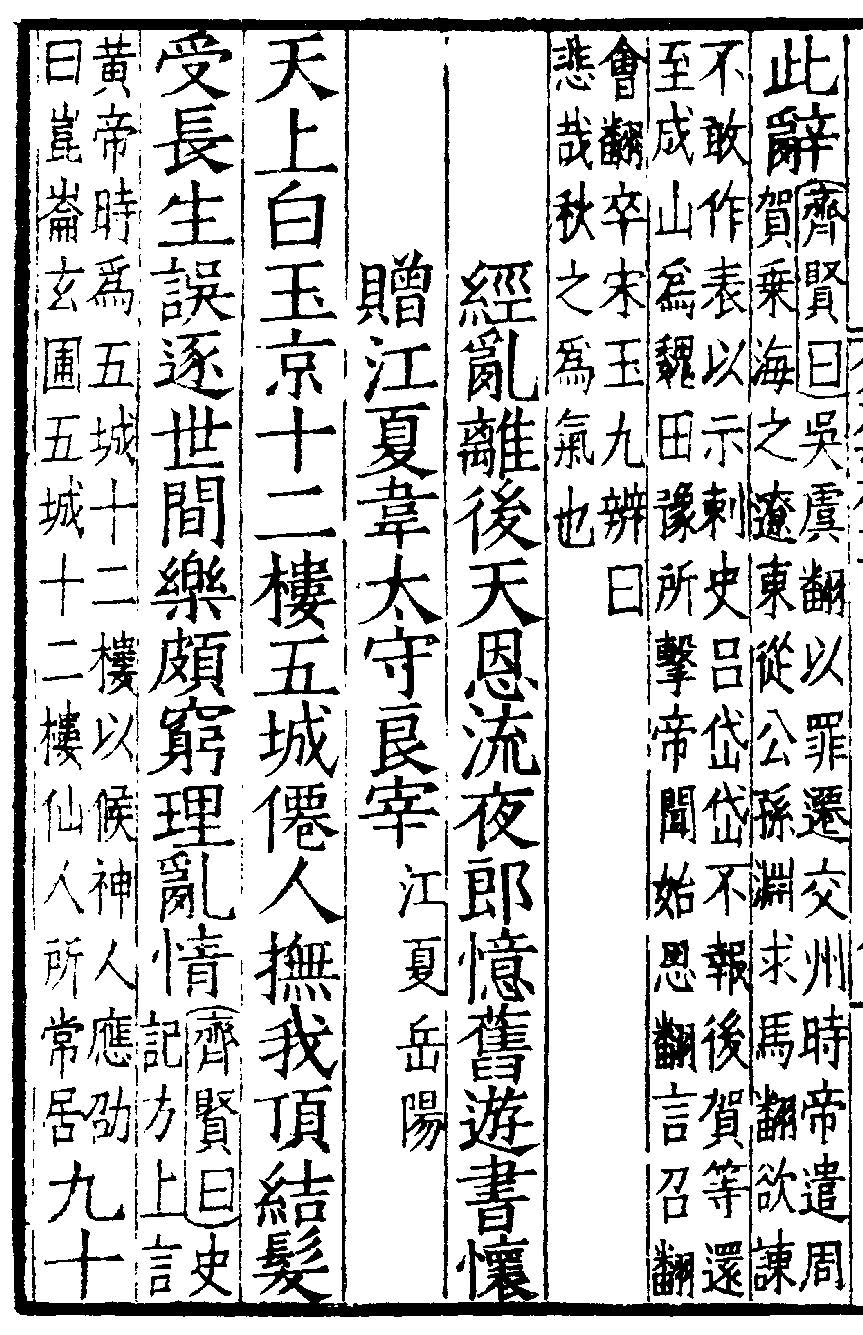 此辭齊賢曰吳虞翻以罪遷交州時帝遣周
賀乗海之遼東從公孫淵求馬翻欲諫
不敢作表以示刺史呂岱岱不報後賀等還
至成山爲魏田豫所擊帝聞始恩翻言召翻
會翻卒宋玉九辨曰
悲哉秋之爲氣也
經亂離後天恩流夜郎憶舊遊書懷
贈江夏韋太守良宰江夏岳陽
天上白玉京十二樓五城僊人撫我頂結髮
受長生誤逐世間樂頗窮理亂情齊賢曰史
記方上言
黄帝時爲五城十二樓以候神人應劭
曰崑崙玄圃五城十二樓仙人所常居九十